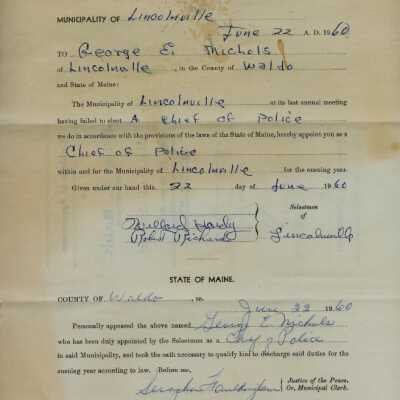 MUNICIPALITY OF Lincolnville
June 22 A. D. 1960
TO George E. Nichols
of Lincolnville, in the County of Waldo
and State of Maine:
The Municipality of Lincolnville at its last annual meeting
having failed to elect A Chief of Police
we do in accordance with the provisions of the laws of the State of Maine, hereby appoint you as a
Chief of Police
within and for the Municipality of Lincolnville for the ensuing year.
Given under our hand this 22 day of June 1960
Millard Hardy
Robert Richards
Selectmen
of
Lincolnville
STATE OF MAINE.
COUNTY OF Waldo, ss.
June 22 1960
Personally appeared the above named George E. Nichols
who has been duly appointed by the Selectmen as a Chief of Police
in said Municipality, and took the oath necessary to qualify him to discharge said duties for the
ensuing year according to law. Before me,
Justice of the Peace.
Or, Municipal Clerk.